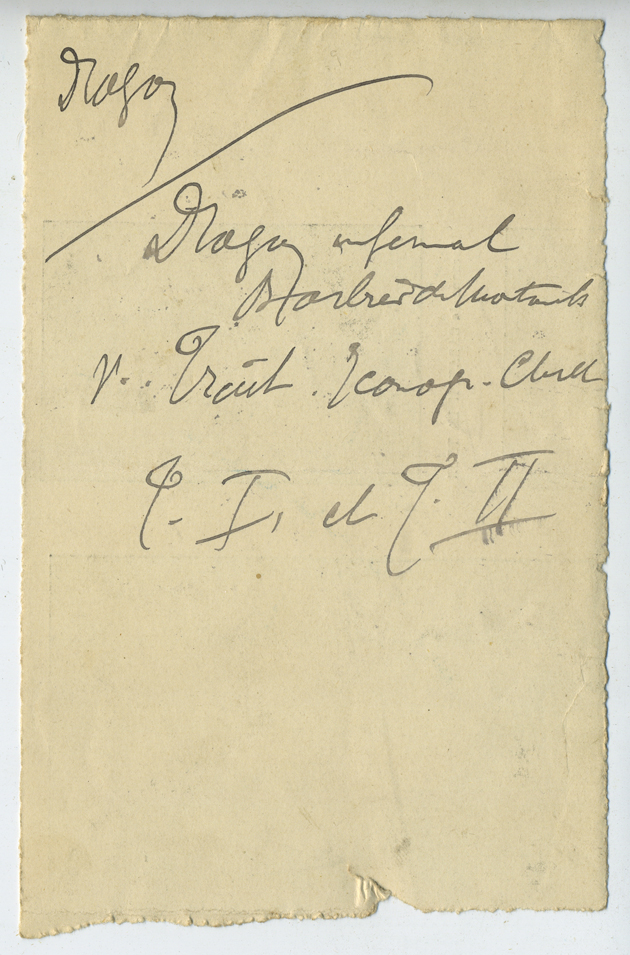 Dragon
Dragon infernal
Barbier de Montault
V. Trait. Iconogr. Chrét
T. I, et T. II